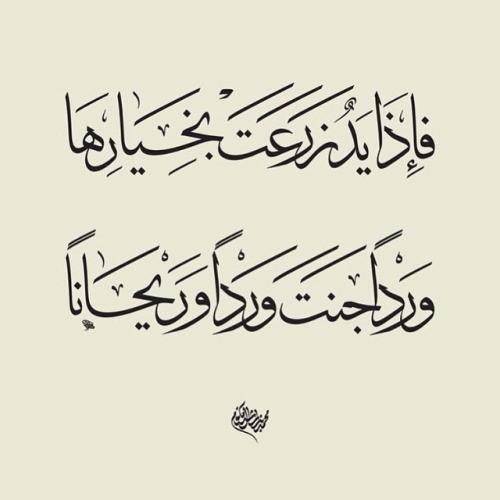 فَإِذَا يَدٌ زَرَعَتْ بِخِيَارِهَا
وَرْداً جَنَتْ وَرْداً وَرَيْحَاناً